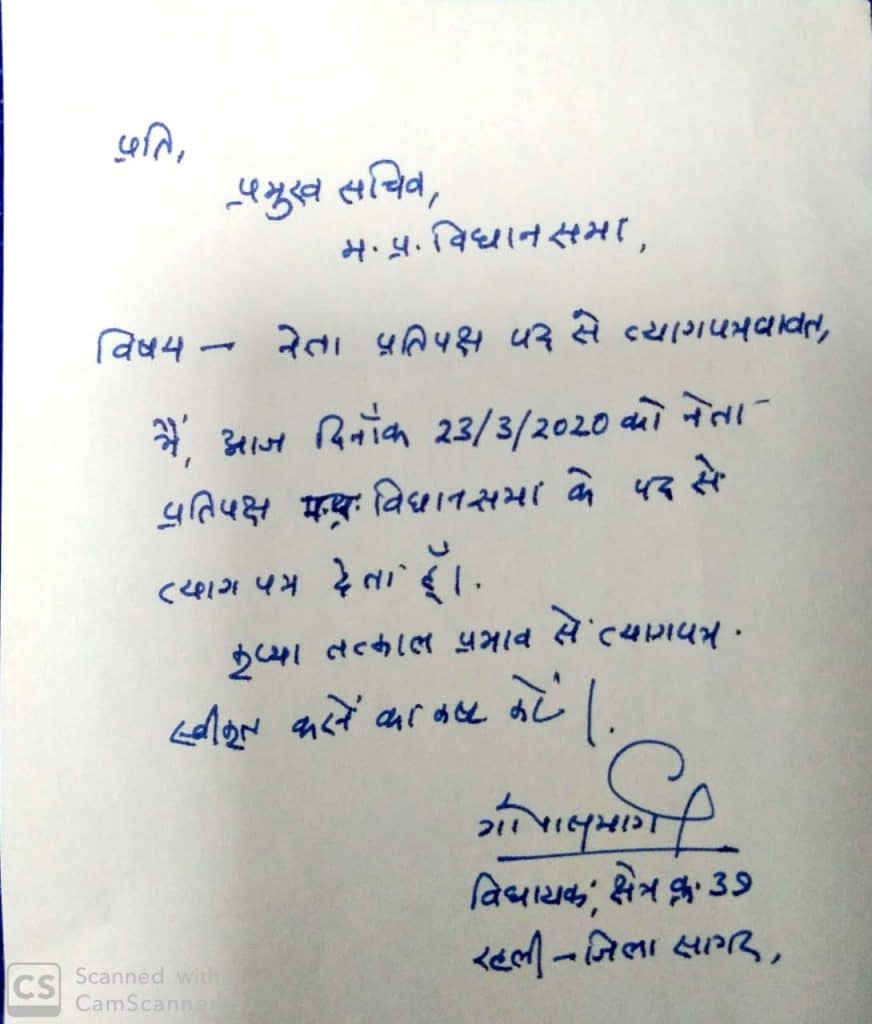 प्रति,
प्रमुख सचिव,
म. प्र. विधानसभा,
विषय – नेता प्रतिपक्ष पद से त्यागपत्र बावत,
मैं, आज दिनाँक 23/3/2020 को नेता
प्रतिपक्ष म.प्र. विधानसभा के पद से
त्याग पत्र देता हूँ।
कृप्या तत्काल प्रभाव से त्यागपत्र
स्वीकृत करने का कष्ट करें।
गोपाल भार्गव
विधायक, क्षेत्र क्र. 39
रहली – जिला सागर,
CS Scanned with
CamScanner